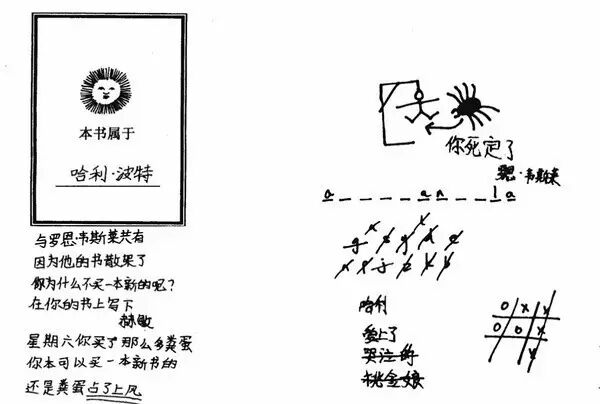 本书属于
哈利·波特
与罗恩·韦斯莱共有
因为他的书散架了
你为什么不买一本新的呢?
在你的书上写下
赫敏
星期六你买了那么多粪蛋
你本可以买一本新书的
还是粪蛋占了上风
你死定了
罗恩·韦斯莱
a _ _ _ _ a n _ _ l a
哈利
爱上了
哭泣的
桃金娘
O X X
O O X
X